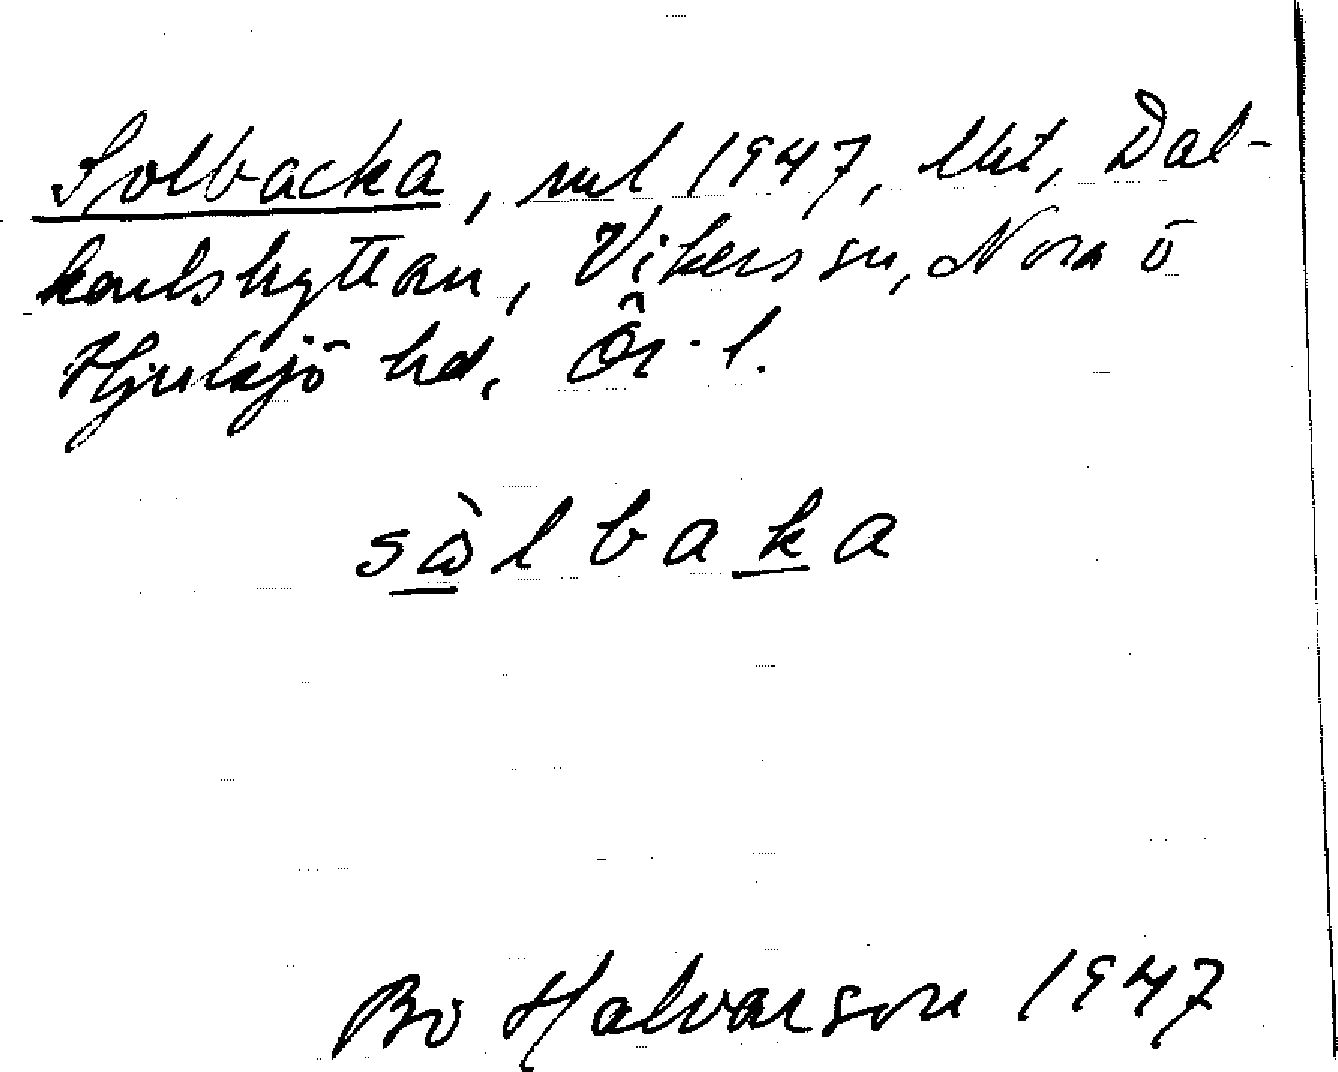 Solbacka, ml 1947, lht, Dal-
karlshyttan, Vikers sn, Nora o
Hjulsjö hd, Ör. l.
sὼlbaka
Bo Halvarson 1947